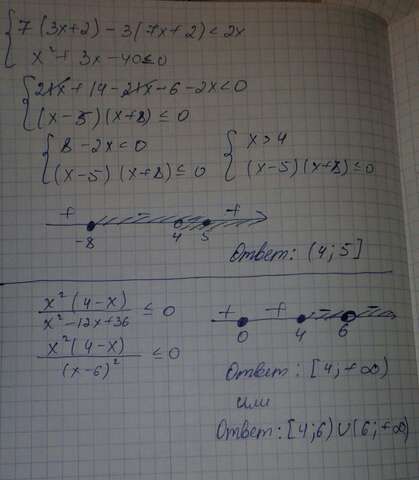 { 7(3x+2) - 3(7x+2) < 2x
x² + 3x - 40 ≤ 0
{ 21x + 14 - 21x - 6 - 2x < 0
(x-5)(x+8) ≤ 0
{ 8 - 2x < 0
(x-5)(x+8) ≤ 0
{ x > 4
(x-5)(x+8) ≤ 0
+ - +
-8 4 5
Ответ: (4; 5]
x²(4-x) / x²-12x+36 ≤ 0
x²(4-x) / (x-6)² ≤ 0
+ + - -
0 4 6
Ответ: [4; +∞)
или
Ответ: [4; 6) ∪ (6; +∞)